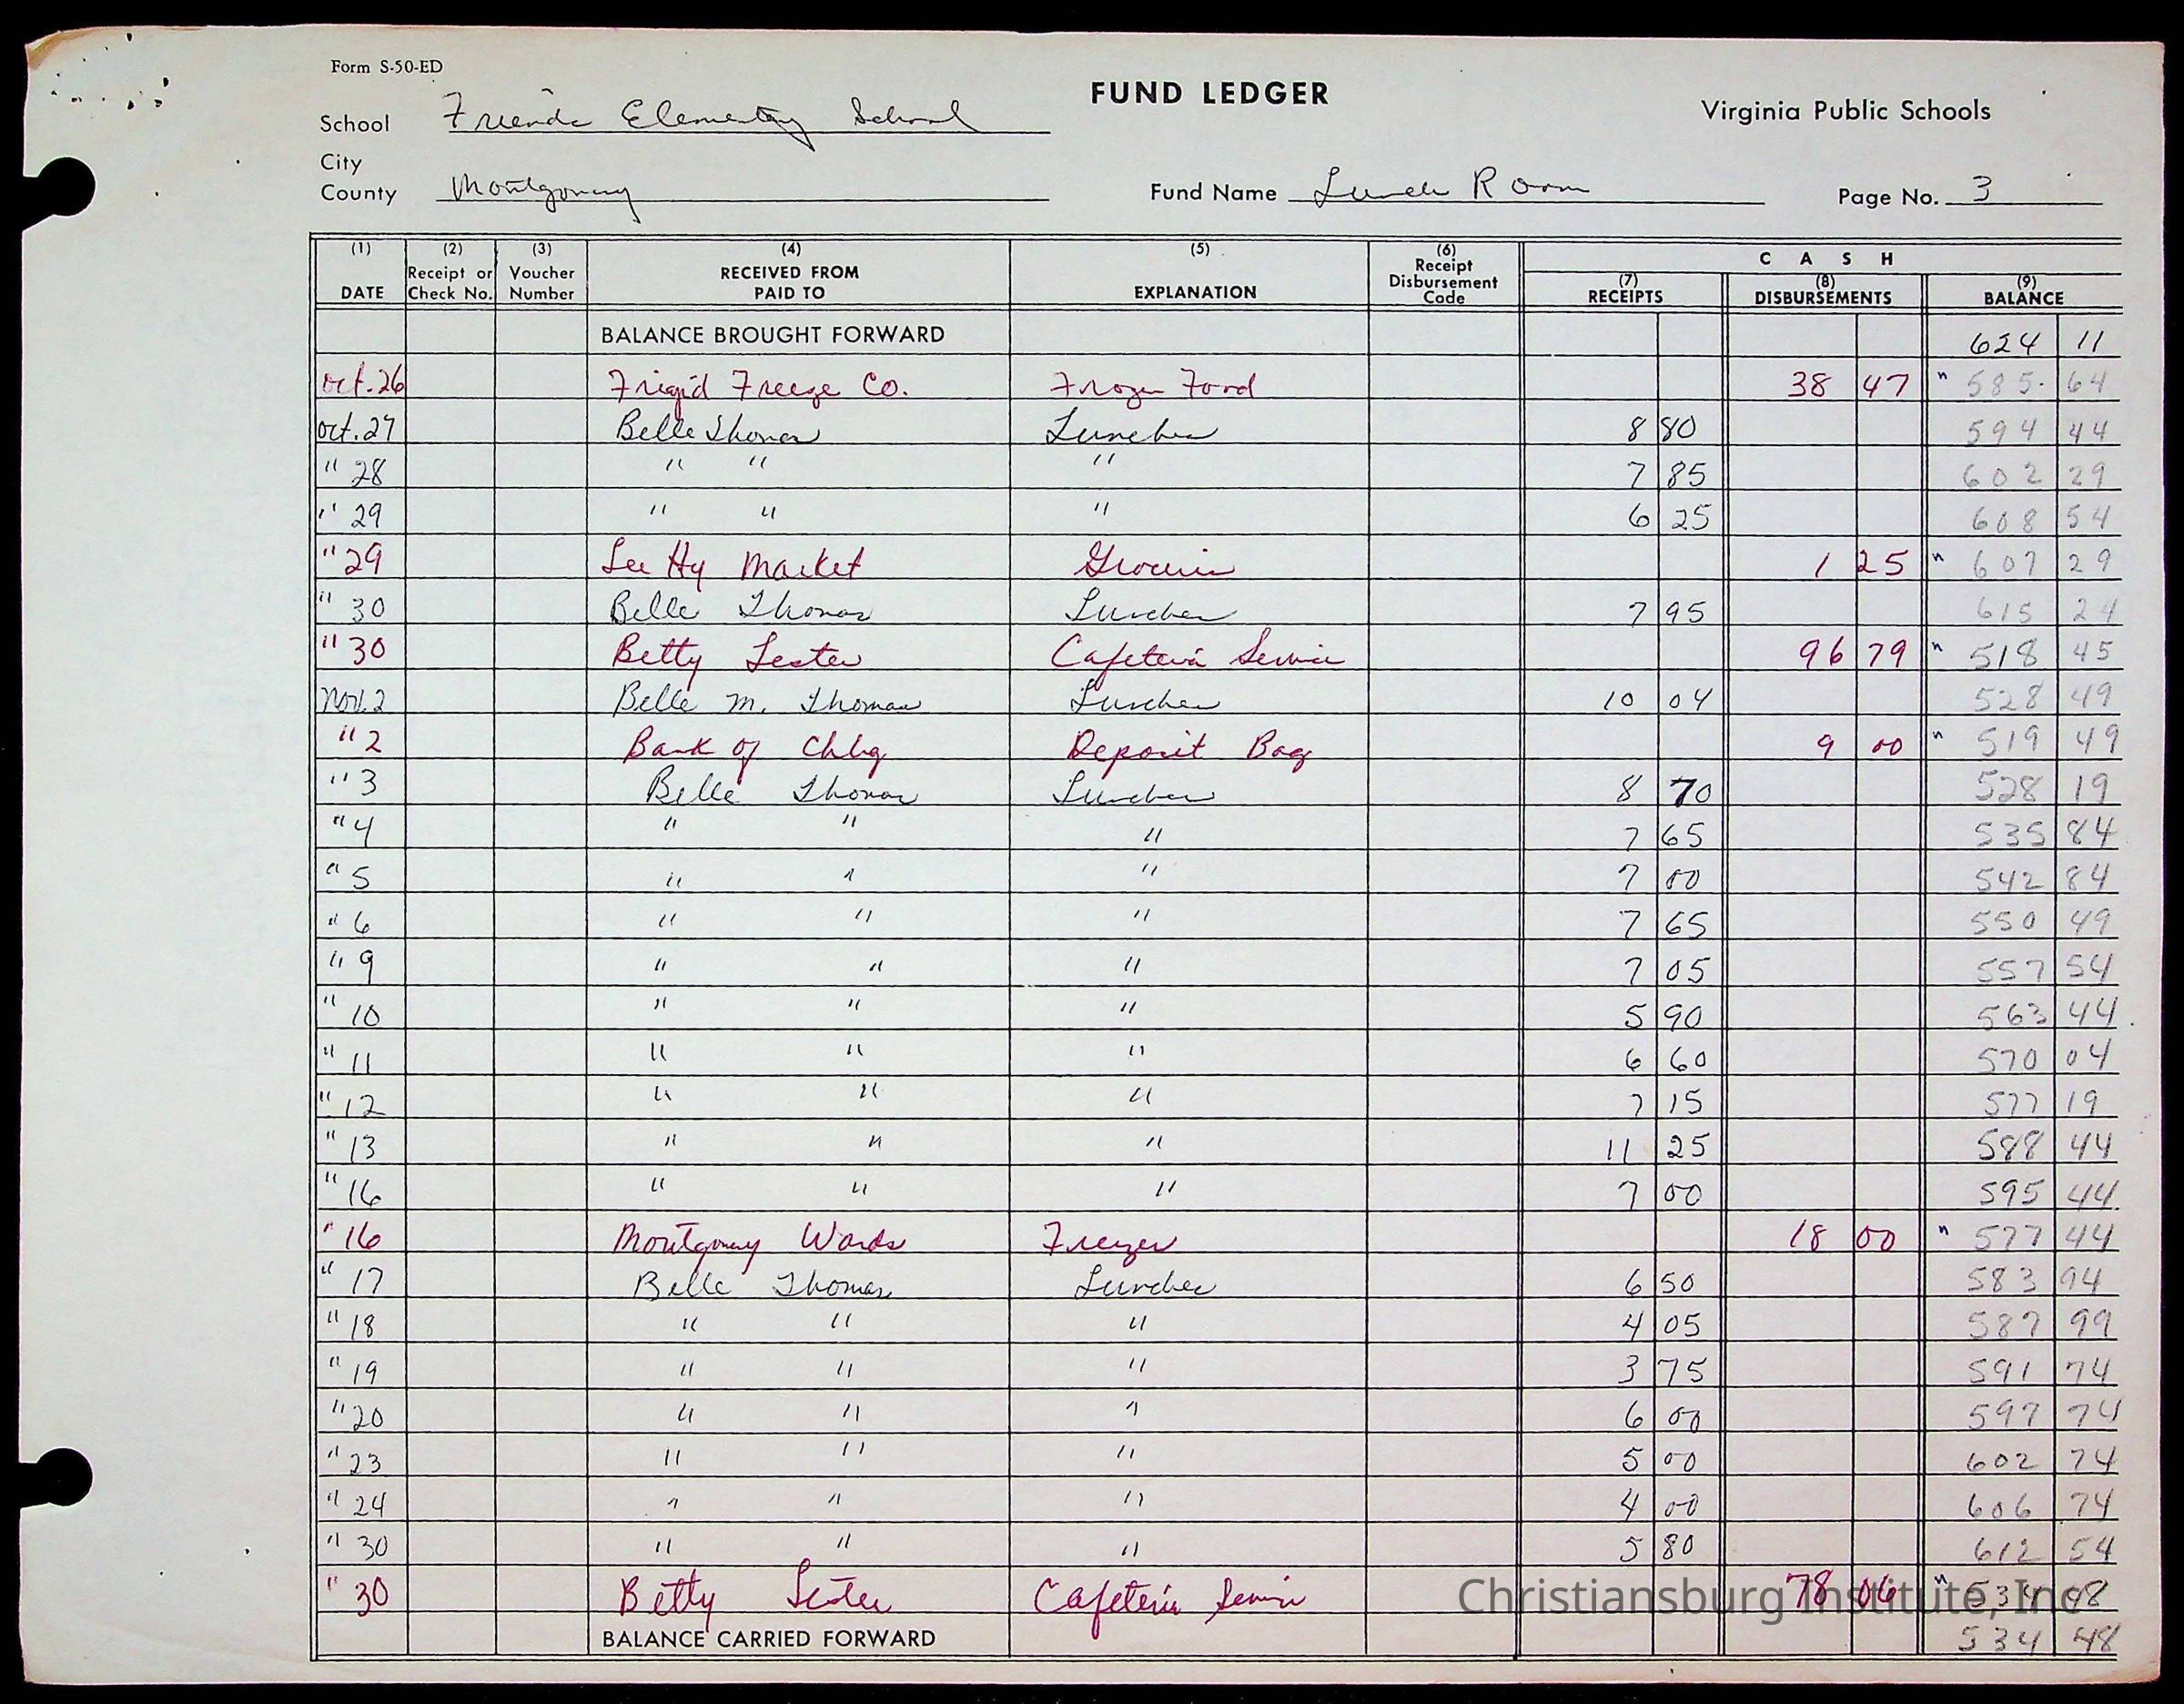 Form S-50-ED
FUND LEDGER
Virginia Public Schools
School Friends Elementary School
City
County Montgomery
Fund Name Lunch Room
Page No. 3
(1) DATE (2) Receipt or Check No. (3) Voucher Number (4) RECEIVED FROM PAID TO (5) EXPLANATION (6) Receipt Disbursement Code CASH (7) RECEIPTS (8) DISBURSEMENTS (9) BALANCE
BALANCE BROUGHT FORWARD 624 11
Oct. 26 Frigid Freeze Co. Frozen Food 38 47 " 585. 64
Oct. 27 Belle Thomas Lunches 8 80 594 44
" 28 " " " 7 85 602 29
" 29 " " " 6 25 608 54
" 29 Lee Hy Market Groceries 1 25 " 607 29
" 30 Belle Thomas Lunches 7 95 615 24
" 30 Betty Lester Cafeteria Service 96 79 " 518 45
Nov. 2 Belle M. Thomas Lunches 10 04 528 49
" 2 Bank of Chbg Deposit Bag 9 00 " 519 49
" 3 Belle Thomas Lunches 8 70 528 19
" 4 " " " 7 65 535 84
" 5 " " " 7 00 542 84
" 6 " " " 7 65 550 49
" 9 " " " 7 05 557 54
" 10 " " " 5 90 563 44
" 11 " " " 6 60 570 04
" 12 " " " 7 15 577 19
" 13 " " " 11 25 588 44
" 16 " " " 7 00 595 44
" 16 Montgomery Wards Freezer 18 00 " 577 44
" 17 Belle Thomas Lunches 6 50 583 94
" 18 " " " 4 05 587 99
" 19 " " " 3 75 591 74
" 20 " " " 6 00 597 74
" 23 " " " 5 00 602 74
" 24 " " " 4 00 606 74
" 30 " " " 5 80 612 54
" 30 Betty Lester Cafeteria Service 78 06 " 534 48
Christiansburg Institute, Inc
BALANCE CARRIED FORWARD 534 48